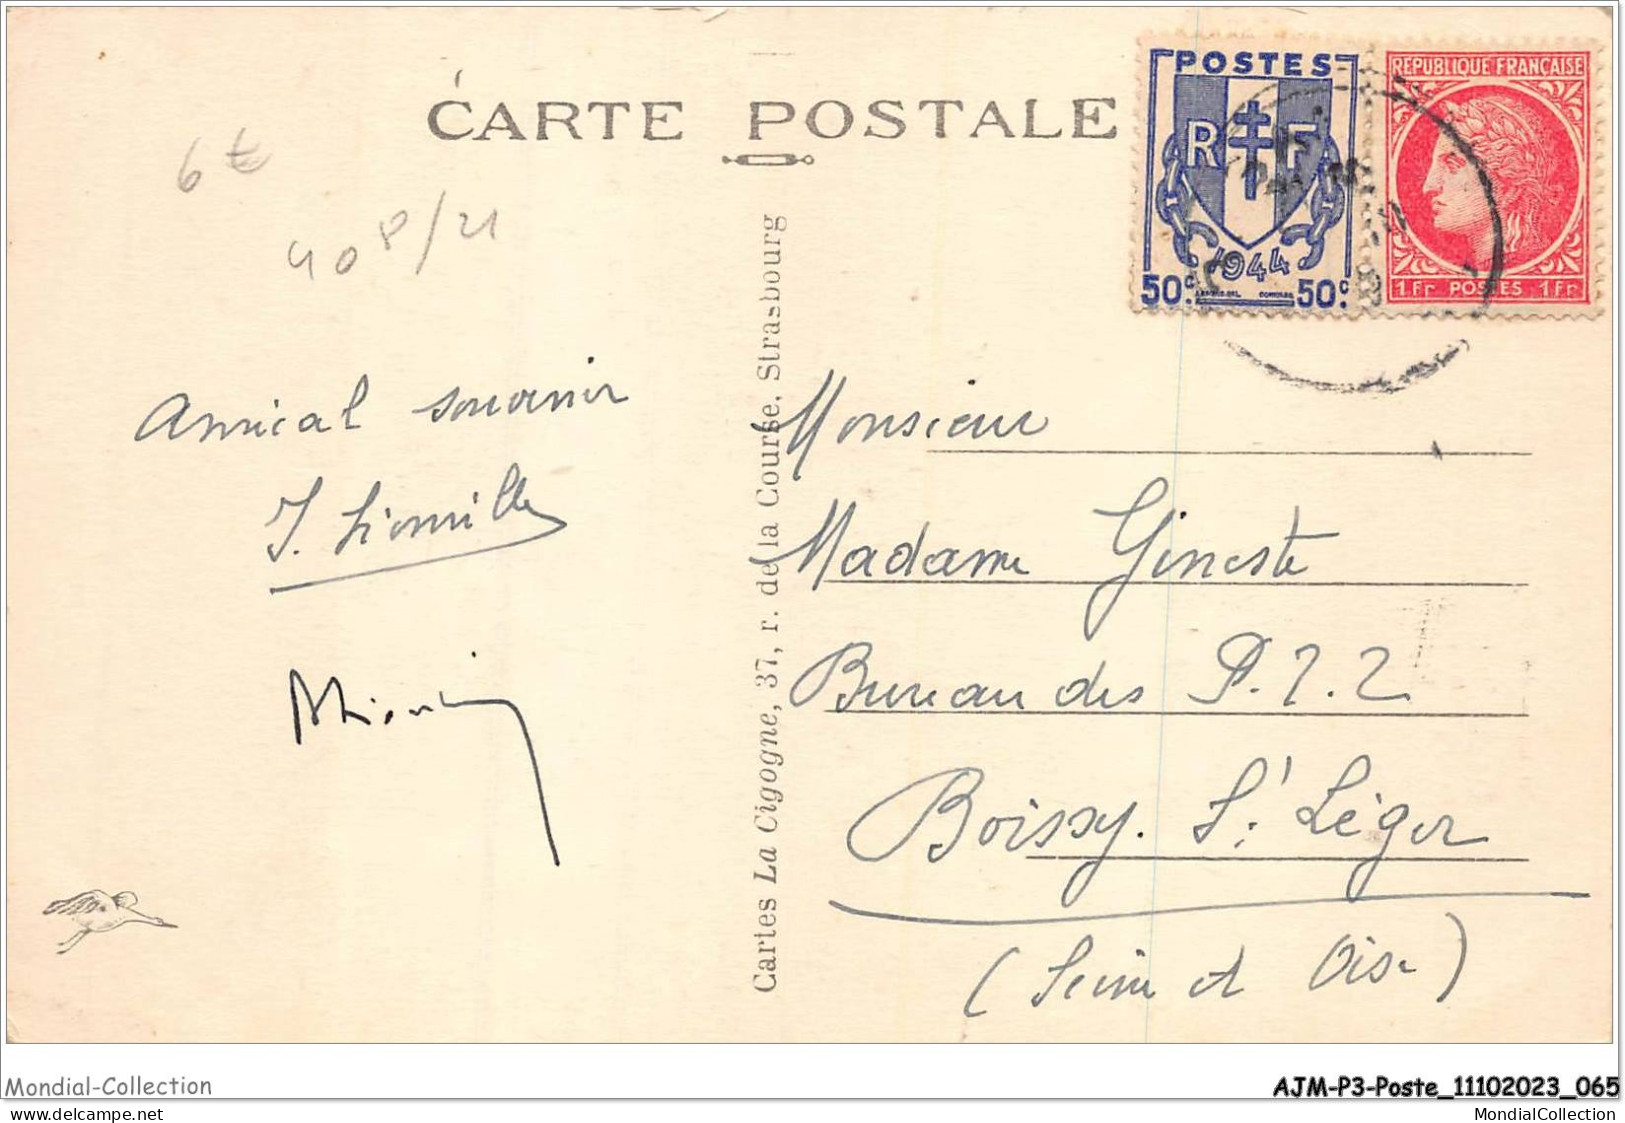 CARTE POSTALE
POSTES
RF
1944
50c. 50c.
REPUBLIQUE FRANÇAISE
1Fr POSTES 1Fr
6€
40 P/21
Amical souvenir
Cartes La Cigogne, 37, r. de la Course, Strasbourg
Monsieur
Madame Gineste
Bureau des P.T.T
Boissy. St Léger
(Seine et Oise)
Mondial-Collection
AJM-P3-Poste_11102023_065
www.delcampe.net
MondialCollection